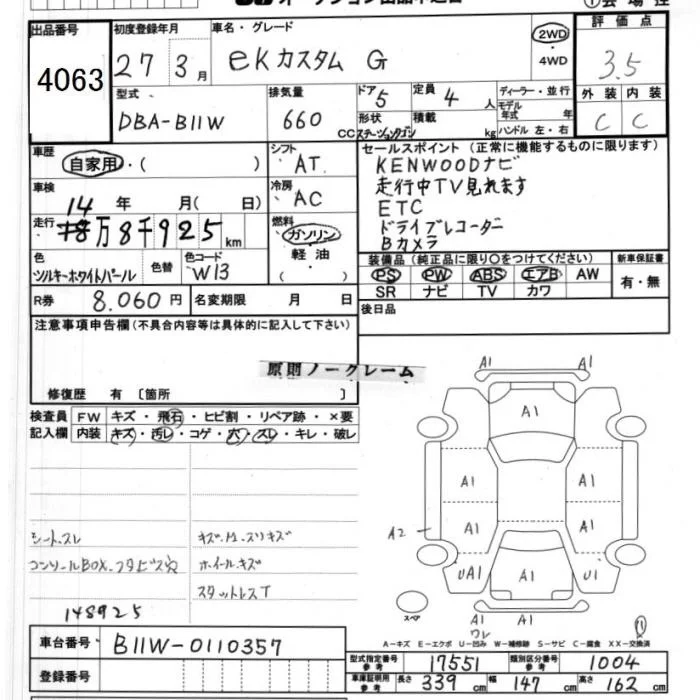 出品番号
4063
初度登録年月
27年3月
車名・グレード
eKカスタム G
2WD
・
4WD
評価点
3.5
外装
内装
C
C
型式
DBA-B11W
排気量
660
CC
ドア
5
形状
ステーションワゴン
定員
4
人
積載
kg
ディーラー・並行
モデル年式
年
ハンドル 左・右
車歴
自家用・( )
シフト
AT
セールスポイント (正常に機能するものに限ります)
KENWOODナビ
走行中TV見れます
ETC
ドライブレコーダー
Bカメラ
車検
14年 月( 日)
冷房
AC
走行
万8千925km
燃料
ガソリン
・
軽油
( )
色
ソルキーホワイトパール
色替
色コード
W13
装備品 (純正品に限り○をつけてください)
PS PW ABS エアB AW
SR ナビ TV カワ
新車保証書
有・無
R券
8.060円
名変期限
月 日
後日品
注意事項申告欄(不具合内容等は具体的に記入して下さい)
原則ノークレーム
修復歴 有〔箇所 〕
検査員
記入欄
FW キズ・飛石・ヒビ割・リペア跡・×要
内装 キズ・汚レ・コゲ・穴・スレ・キレ・破レ
シートスレ
コンソールBOX.フタビス穴
148925
ホイールキズ
スタットレスT
A1
A1
A1
A1
A1
A1
A1
A2
UA1
A1
U1
スペア
A1
ワレ
A1
A-キズ E-エクボ U-凹み W-補修跡 S-サビ C-腐食 XX-交換済
車台番号
B11W-0110357
登録番号
型式指定番号
参考
17551
類別区分番号
参考
1004
車庫証明用
参考
長さ 339cm
幅 147cm
高さ 162cm